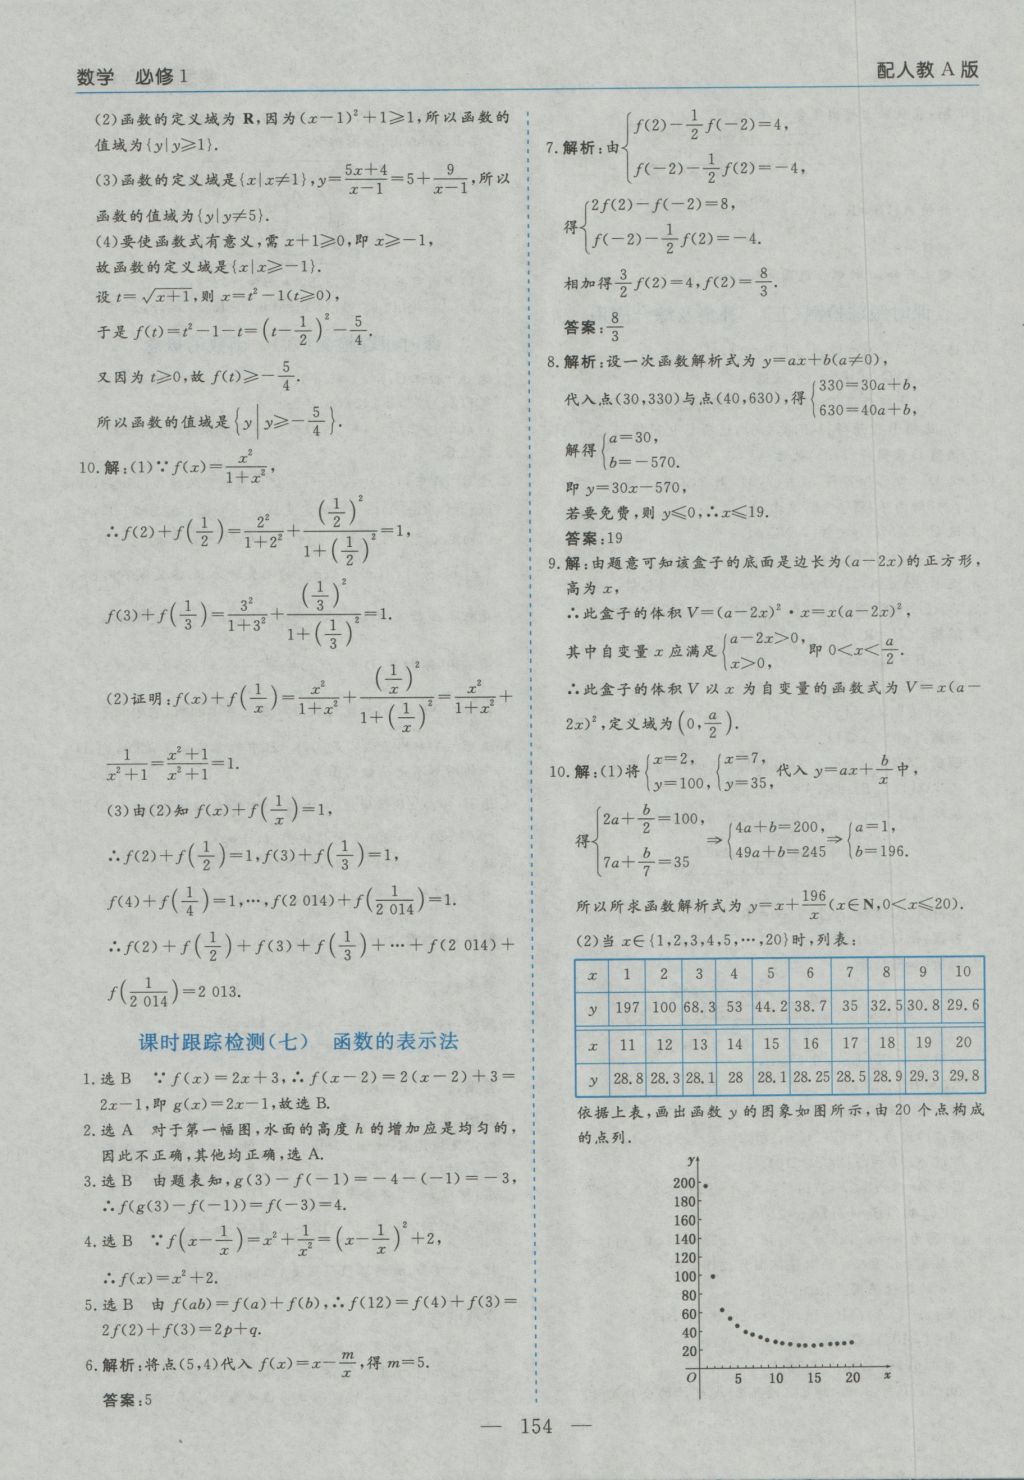 数学　必修1
配人教A版
(2)函数的定义域为 R,因为(x-1)²+1⩾1,所以函数的
值域为{y|y⩾1}.
(3)函数的定义域是{x|x≠1},y=(5x+4)/(x-1)=5+9/(x-1),所以
函数的值域为{y|y≠5}.
(4)要使函数式有意义,需 x+1⩾0,即 x⩾-1,
故函数的定义域是{x|x⩾-1}.
设 t=√(x+1),则 x=t²-1(t⩾0),
于是 f(t)=t²-1-t=(t-1/2)²-5/4.
又因为 t⩾0,故 f(t)⩾-5/4.
所以函数的值域是{y|y⩾-5/4}.
10.解:(1)∵f(x)=x²/(1+x²),
∴f(2)+f(1/2)=2²/(1+2²)+(1/2)²/(1+(1/2)²)=1,
f(3)+f(1/3)=3²/(1+3²)+(1/3)²/(1+(1/3)²)=1.
(2)证明:f(x)+f(1/x)=x²/(1+x²)+(1/x)²/(1+(1/x)²)=x²/(1+x²)+
1/(x²+1)=(x²+1)/(x²+1)=1.
(3)由(2)知 f(x)+f(1/x)=1,
∴f(2)+f(1/2)=1,f(3)+f(1/3)=1,
f(4)+f(1/4)=1,…,f(2 014)+f(1/2 014)=1.
∴f(2)+f(1/2)+f(3)+f(1/3)+…+f(2 014)+
f(1/2 014)=2 013.
课时跟踪检测(七)　函数的表示法
1.选 B　∵f(x)=2x+3,∴f(x-2)=2(x-2)+3=
2x-1,即 g(x)=2x-1,故选 B.
2.选 A　对于第一幅图,水面的高度 h 的增加应是均匀的,
因此不正确,其他均正确,选 A.
3.选 B　由题表知,g(3)-f(-1)=-4-(-1)=-3,
∴f(g(3)-f(-1))=f(-3)=4.
4.选 B　∵f(x-1/x)=x²+1/x²=(x-1/x)²+2,
∴f(x)=x²+2.
5.选 B　由 f(ab)=f(a)+f(b),∴f(12)=f(4)+f(3)=
2f(2)+f(3)=2p+q.
6.解析:将点(5,4)代入 f(x)=x-m/x,得 m=5.
答案:5
7.解析:由{f(2)-1/2f(-2)=4,
f(-2)-1/2f(2)=-4,
得{2f(2)-f(-2)=8,
f(-2)-1/2f(2)=-4.
相加得3/2f(2)=4,f(2)=8/3.
答案:8/3
8.解析:设一次函数解析式为 y=ax+b(a≠0),
代入点(30,330)与点(40,630),得{330=30a+b,
630=40a+b,
解得{a=30,
b=-570.
即 y=30x-570,
若要免费,则 y⩽0,∴x⩽19.
答案:19
9.解:由题意可知该盒子的底面是边长为(a-2x)的正方形,
高为 x,
∴此盒子的体积 V=(a-2x)²·x=x(a-2x)²,
其中自变量 x 应满足{a-2x>0, x>0, 即 0<x<a/2.
∴此盒子的体积 V 以 x 为自变量的函数式为 V=x(a-
2x)²,定义域为(0,a/2).
10.解:(1)将{x=2, y=100,{x=7, y=35, 代入 y=ax+b/x中,
得{2a+b/2=100, 7a+b/7=35⇒{4a+b=200, 49a+b=245⇒{a=1, b=196.
所以所求函数解析式为 y=x+196/x(x∈N,0<x⩽20).
(2)当 x∈{1,2,3,4,5,…,20}时,列表:
x 1 2 3 4 5 6 7 8 9 10
y 197 100 68.3 53 44.2 38.7 35 32.5 30.8 29.6
x 11 12 13 14 15 16 17 18 19 20
y 28.8 28.3 28.1 28 28.1 28.25 28.5 28.9 29.3 29.8
依据上表,画出函数 y 的图象如图所示,由 20 个点构成
的点列.
y
200
180
160
140
120
100
80
60
40
20
O 5 10 15 20 x
— 154 —